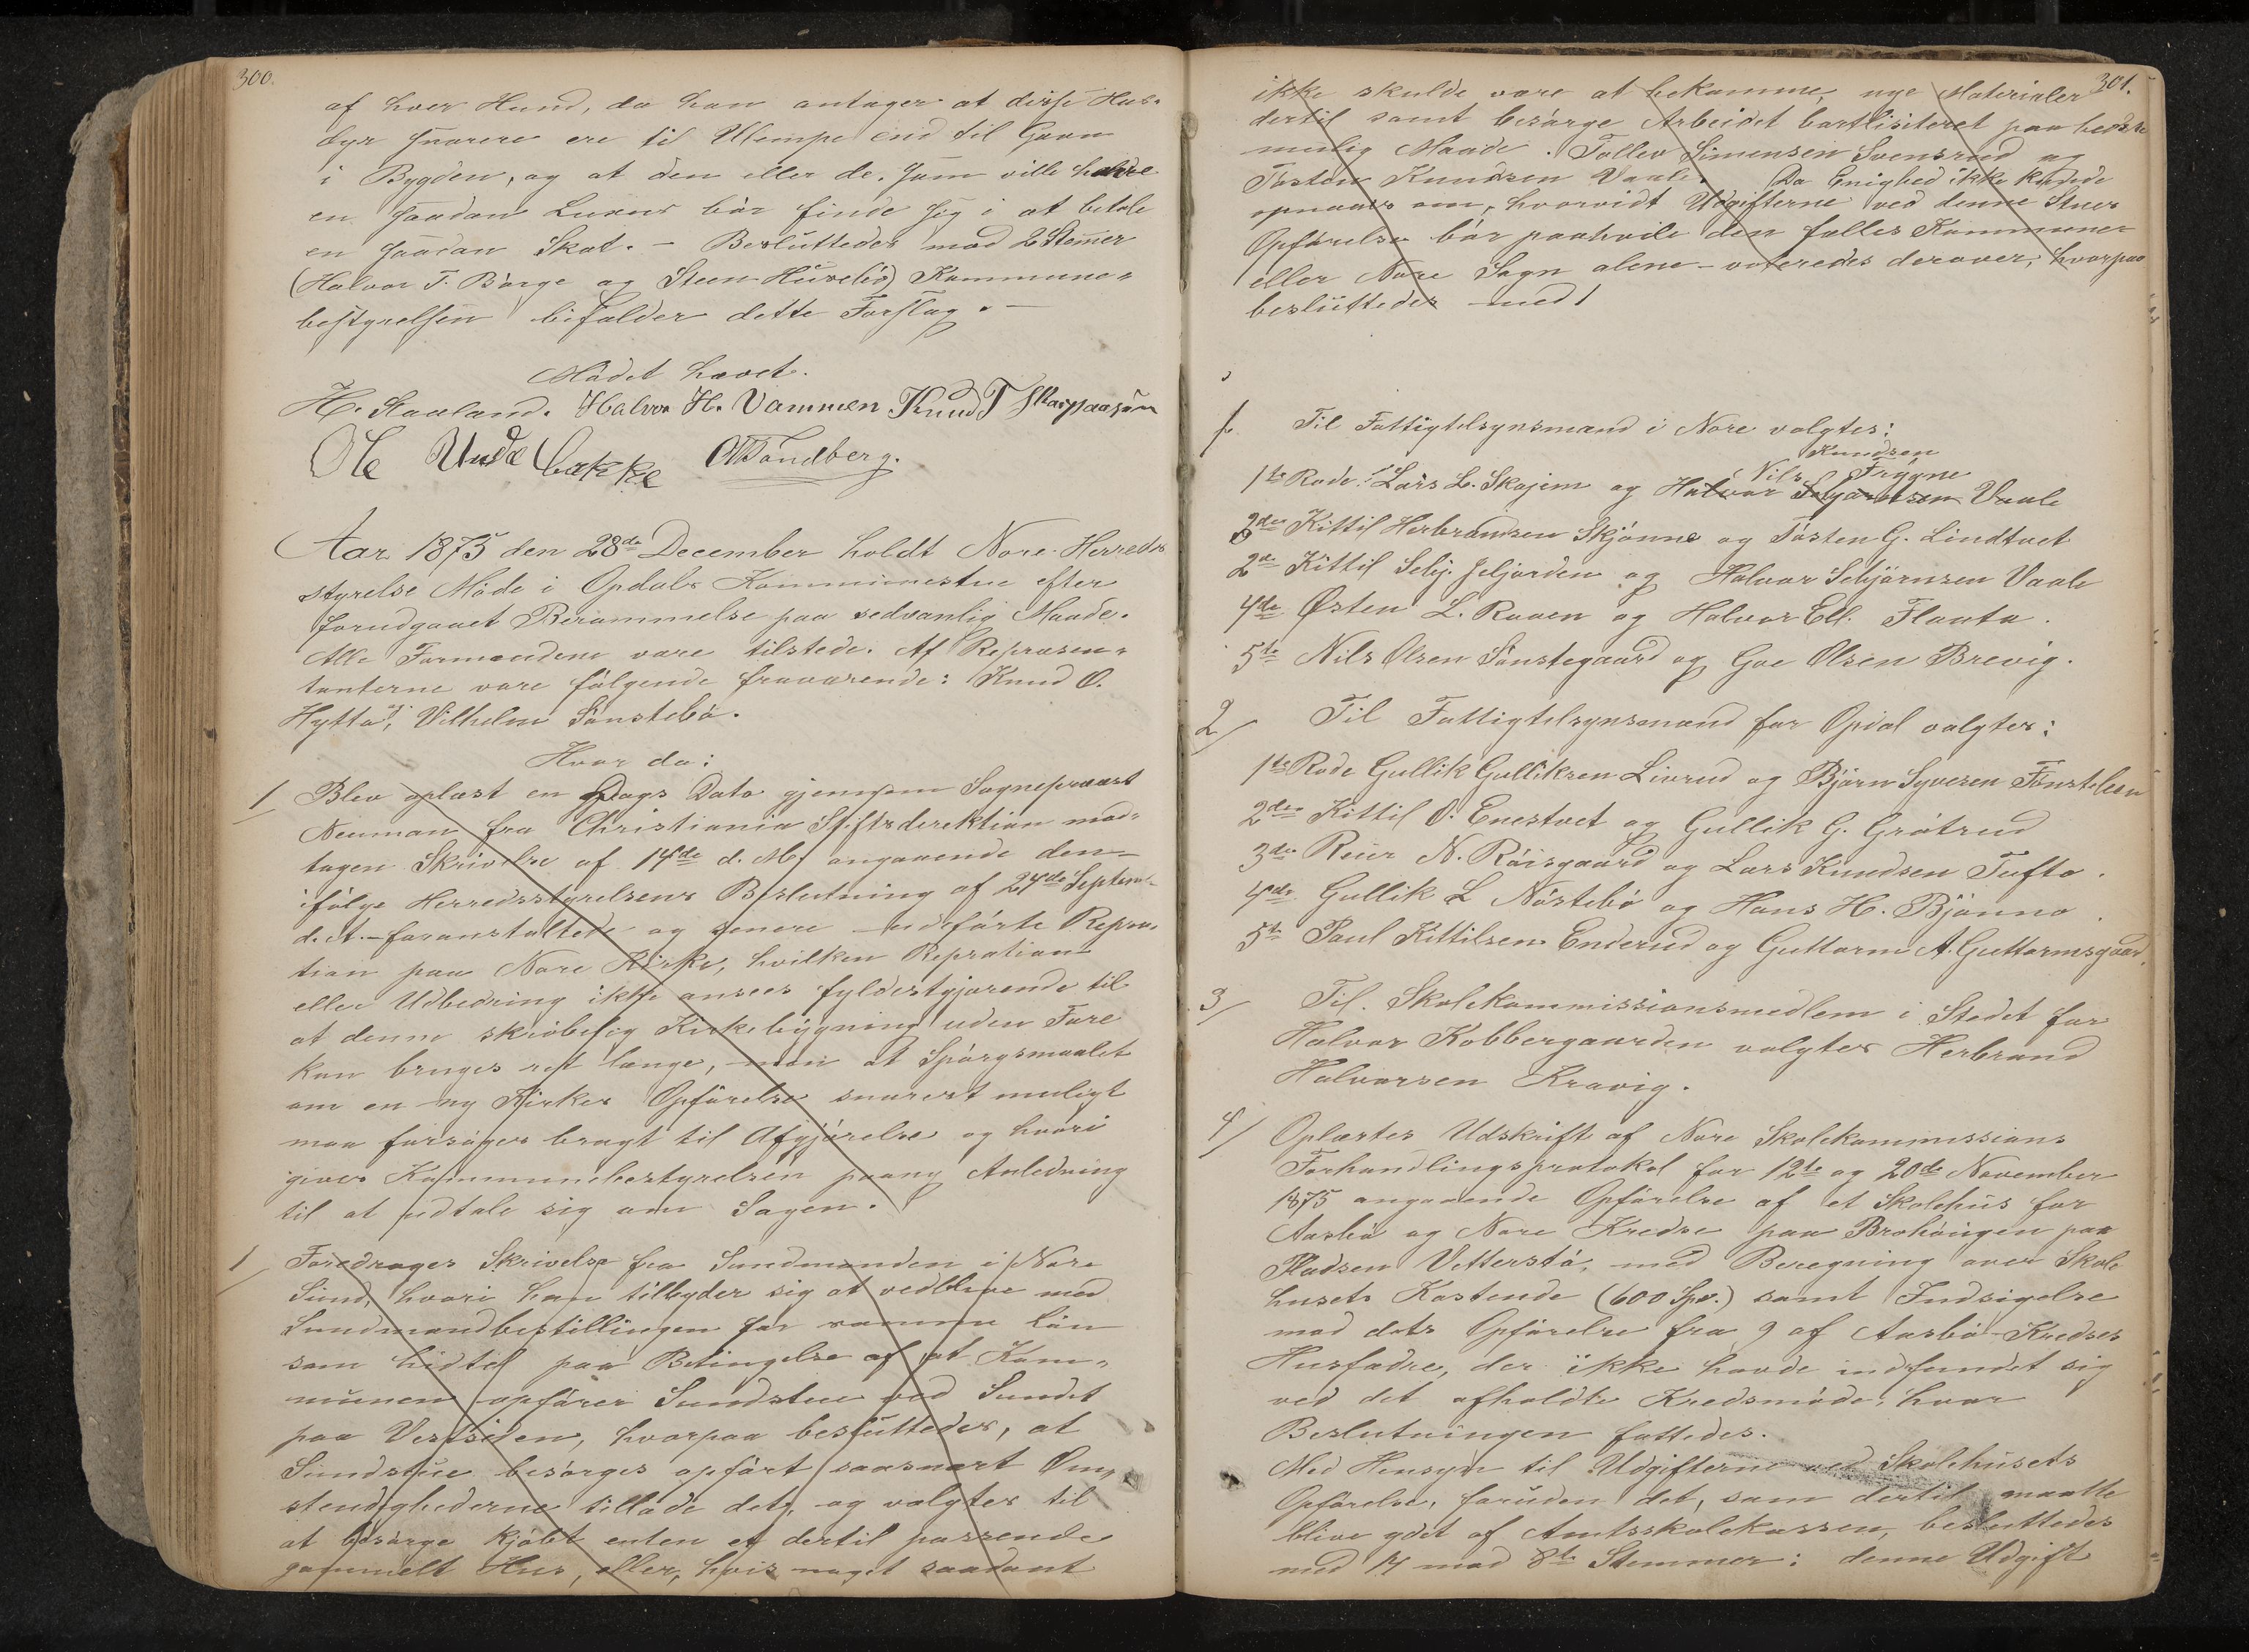 300.
af hver Hund, da han antager at disse Hus-
dyr snarere ere til Ulempe end til Gavn
i Bygden, og at den eller de, som ville holde
en saadan Luxus bør finde sig i at betale
en saadan Skat. – Besluttedes mod 2 Stemmer
(Halvor T. Børge og Steen Huseby) Kommune-
bestyrelsen bifalder dette Forslag. –
Mødet hævet.
H. Skaaland. Halvor H. Vammen Knud T
Ole Underbakke Sandberg.
Aar 1875 den 28de December holdt Nore Herreds
styrelse Møde i Opdals Kommunestue efter
forudgaaet Berammelse paa sedvanlig Maade.
Alle Formændene vare tilstede. Af Repræsen-
tanterne vare følgende fraværende: Knud O.
Hytta, og Vilhelm Sønstebø.
Hvor da:
1/ Blev oplæst en Dags Dato gjennem Sognepræst
Neuman fra Christiania Stiftsdirektion mod-
tagen Skrivelse af 14de d. M. angaaende den –
ifølge Herredsstyrelsens Beslutning af 24de Septem-
d. A. – foranstaltede og senere udførte Repra-
tion paa Nore Kirke, hvilken Repration
eller Udbedring ikke ansees fyldestgjørende til
at denne skrøbelig Kirkebygning uden Fare
kan bruges ret længe, men at Spørgsmaalet
om en ny Kirkes Opførelse snarest muligt
maa forsøges bragt til Afgjørelse og hvori
gives Kommunebestyrelsen paany Anledning
til at udtale sig om Sagen.
1/ Foredrages Skrivelse fra Sundmanden i Nore
Sund, hvori han tilbyder sig at vedblive med
Sundmandbestillingen for samme Løn
som hidtil paa Betingelse af at Kom-
munen opfører Sundstue ved Sundet
paa Vestsiden, hvorpaa besluttedes, at
Sundstue besørges opført saasnart Om-
stendighederne tillade det, og valgtes til
at besørge kjøbt enten et dertil passende
gammelt Hus, eller, hvis noget saadant
301.
ikke skulde være at bekomme, nye Materialer
dertil samt besørge Arbeidet bortlisiteret paa bedste
mulig Maade. Tollev Simensen Svensrud og
Tosten Knudsen Vaale. Da Enighed ikke kunde
opnaaes om, hvorvidt Udgifterne ved denne Stues
Opførelse bør paahvile den fælles Kommune
eller Nore Sogn alene – voteredes derover, hvorpaa
besluttedes med 1
1. Til Fattigtilsynsmænd i Nore valgtes:
Knudsen
Nils Frygne
1ste Rode: Lars L. Skajem og Halvor Sebjørnsen Vaale
3de Kittil Herbrandsen Skjønne og Tosten G. Lindtvet
2de Kittil Sebj. Seljorden og Halvor Sebjørnsen Vaale
4de Østen L. Raaen og Halvor Ell. Flaata.
5te Nils Olsen Sønstegaard og Goe Olsen Brevig.
2/ Til Fattigtilsynsmænd for Opdal valgtes:
1ste Rode Gullik Gulliksen Livrud og Bjørn Syversen Tønstelien
2den Kittil O. Enestvet og Gullik G. Grøtrud
3die Reier N. Røisgaard og Lars Knudsen Tufto.
4de Gullik L Nørstebø og Hans H. Bjønno.
5te Paul Kittilsen Enderud og Guttorm A. Guttormsgaard.
3/ Til Skolekommissionsmedlem i Stedet for
Halvor Kobbergaarden valgtes Herbrand
Halvorsen Kravig.
4/ Oplæstes Udskrift af Nore Skolekommissions
Forhandlingsprotokol for 12te og 20de November
1875 angaaende Opførelse af et Skolehus for
Aasbø og Nore Kredse paa Brohøugen paa
Pladsen Vetterstø, med Beregning over Skole
husets Kostende (600 Spd.) samt Indsigelse
mod dets Opførelse fra 9 af Aasbø Kredses
Husfædre, der ikke havde indfundet sig
ved det afholdte Kredsmøde, hvor
Beslutningen fattedes.
Med Hensyn til Udgifterne ved Skolehusets
Opførelse, foruden det, som dertil maatte
blive ydet af Amtsskolekassen, besluttedes
med 14 mod 8te Stemmer: denne Udgift